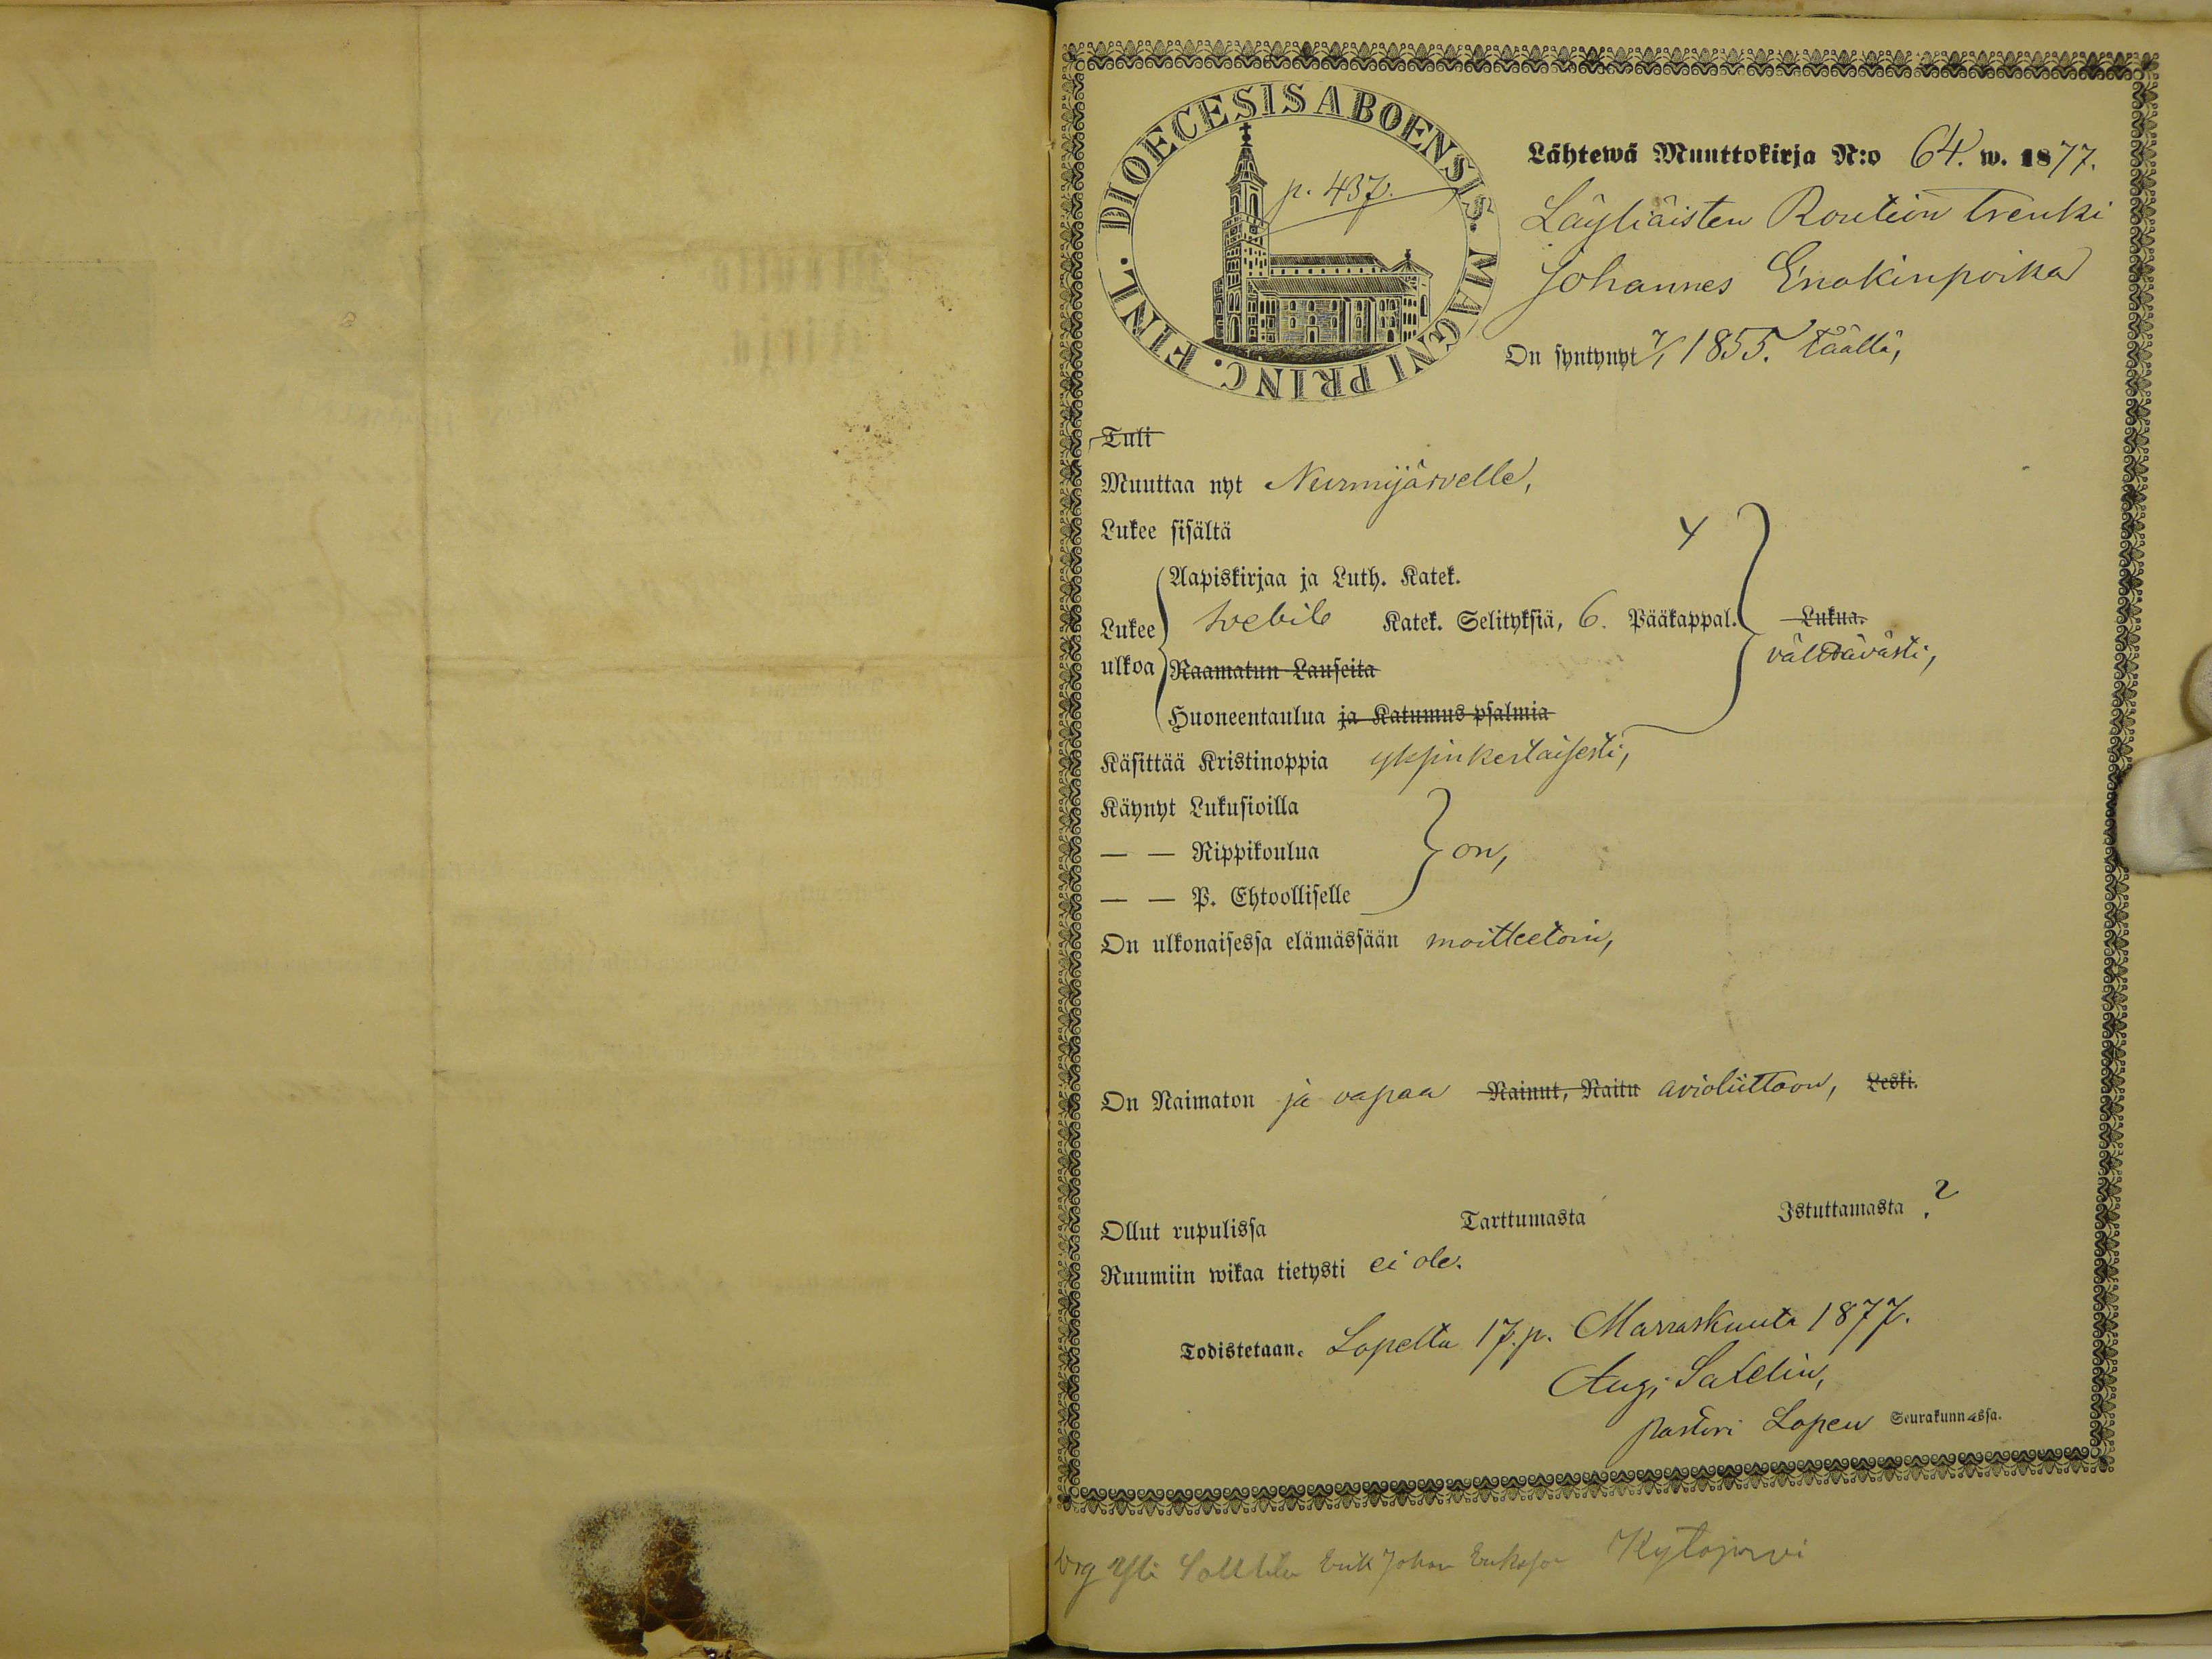 DIOECESIS ABOENSIS. MAGNI PRINC. FINL.
p. 437.
Lähtewä Muuttokirja N:o 64. w. 1877.
Läyliäisten Roution trenki
Johannes Enokinpoika
On syntynyt 7/1 1855. täällä,
Tuli
Muuttaa nyt Nurmijärvelle,
Lukee sisältä
Aapiskirjaa ja Luth. Katek.
Lukee ulkoa Katek. Selityksiä, 6. Pääkappal. Lukua.
välttävästi,
Raamatun Lauseita
Huoneentaulua ja Katumus psalmia
Käsittää Kristinoppia yksinkertaisesti,
Käynyt Lukusioilla
— — Rippikoulua on,
— — P. Ehtoolliselle
On ulkonaisessa elämässään moitteetoin,
On Naimaton ja vapaa Nainut, Naitu avioliittoon, Leski.
Ollut rupulissa Tarttumasta Istuttamasta ?
Ruumiin wikaa tietysti ei ole.
Todistetaan. Lopelta 17. p. Marraskuuta 1877.
Aug. Satelin,
pastori Lopen Seurakunnassa.
Yli Erik Johan Eriksson Kytäjärvi